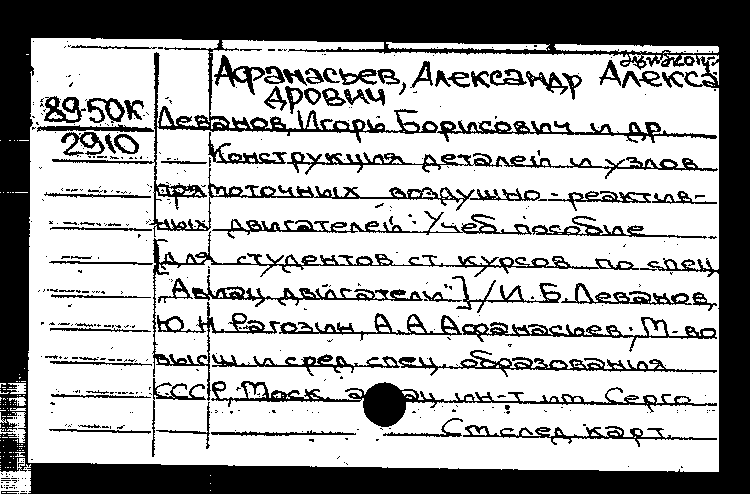 Афанасьев, Александр Алекса
дрович
89-50К
Леванов, Игорь Борисович и др.
2910
Конструкция деталей и узлов
прямоточных воздушно-реактив-
ных двигателей: Учеб. пособие
[для студентов ст. курсов по спец.
"Авиац. двигатели"] / И.Б. Леванов,
Ю.Н. Рагозин, А.А. Афанасьев; М-во
высш. и сред. спец. образования
СССР, Моск. ин-т им. Серго
См. след. карт.